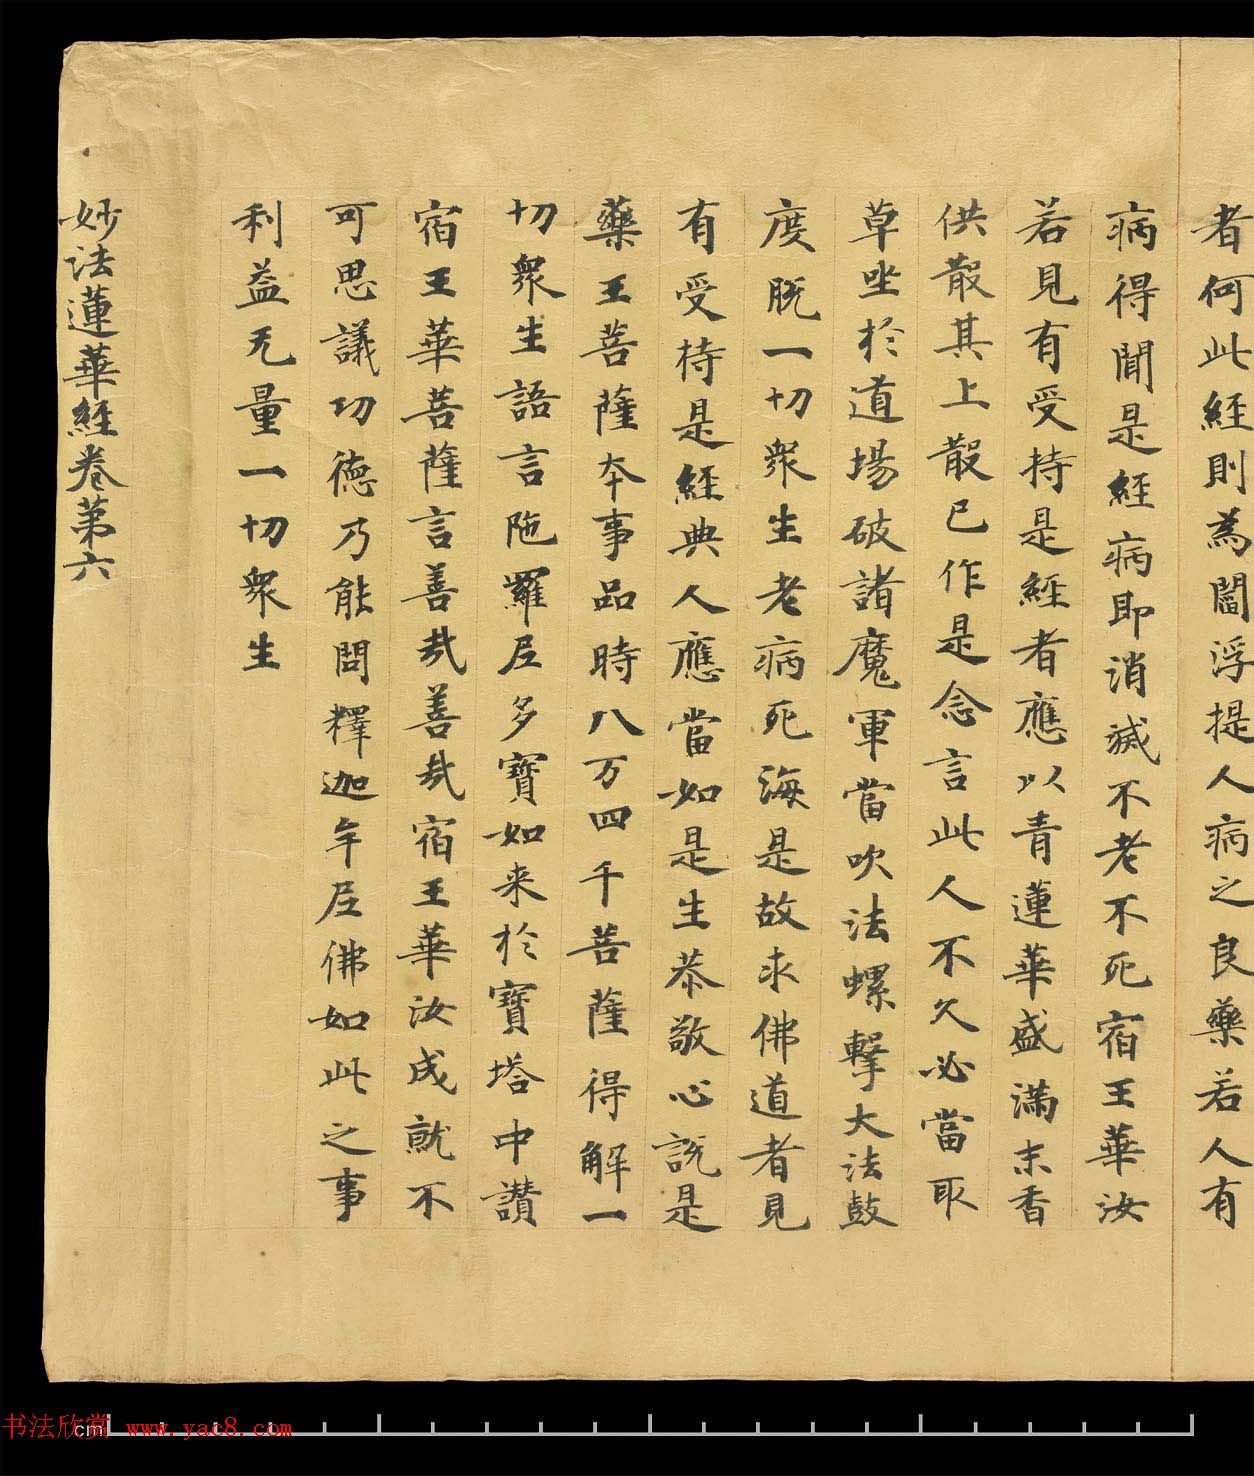 者何此経則為閻浮提人病之良藥若人有
病得聞是経病即消滅不老不死宿王華汝
若見有受持是経者應以青蓮華盛滿末香
供散其上散已作是念言此人不久必當取
草坐於道場破諸魔軍當吹法螺擊大法鼓
度脱一切衆生老病死海是故求佛道者見
有受持是経典人應當如是生恭敬心説是
藥王菩薩本事品時八万四千菩薩得解一
切衆生語言陁羅尼多寶如来於寶塔中讃
宿王華菩薩言善哉善哉宿王華汝成就不
可思議功德乃能問釋迦牟尼佛如此之事
利益无量一切衆生
妙法蓮華経卷第六
cm
书法欣赏 www.yac8.com